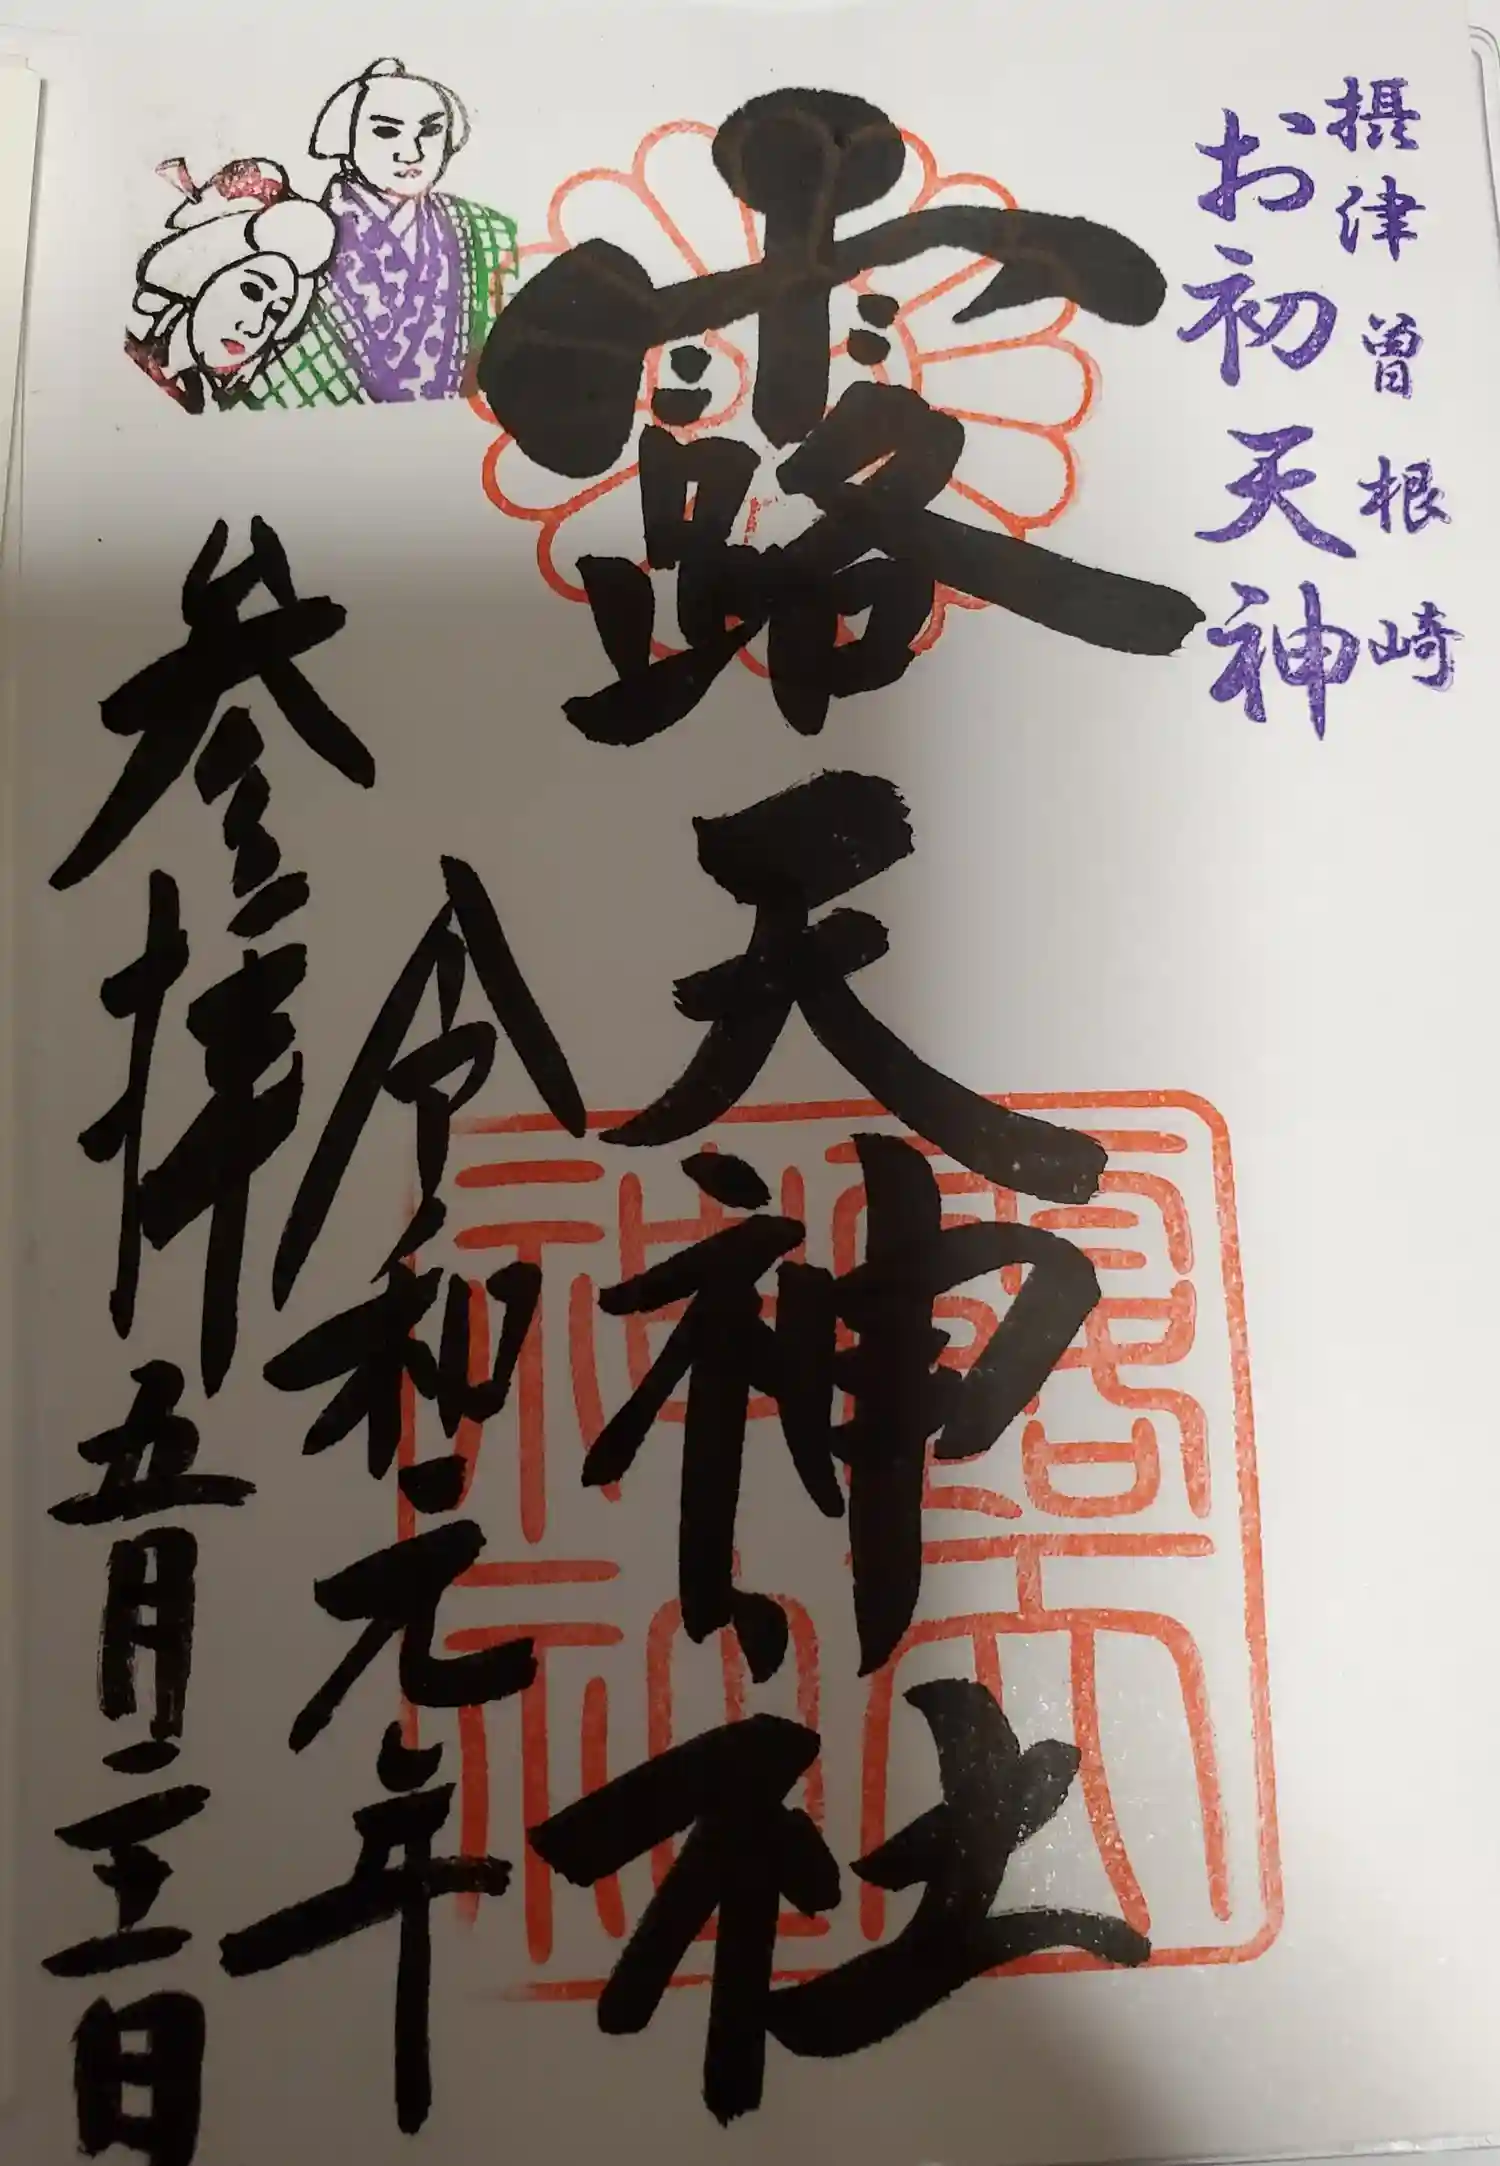 摂津曾根崎
お初天神
露天神社
令和元年
参拝 五月二十一日
露天
神社